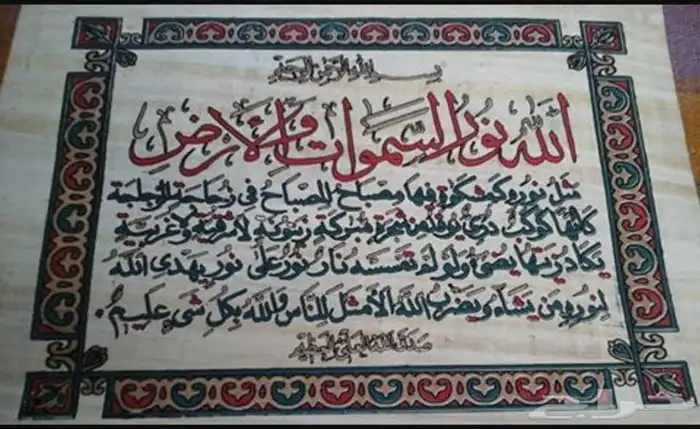 بسم الله الرحمن الرحيم
الله نور السموات والأرض
مثل نوره كمشكوة فيها مصباح المصباح في زجاجة الزجاجة
كأنها كوكب دري يوقد من شجرة مبركة زيتونة لا شرقية ولا غربية
يكاد زيتها يضيء ولو لم تمسسه نار نور على نور يهدي الله
لنوره من يشاء ويضرب الله الأمثل للناس والله بكل شيء عليم
صدق الله العظيم